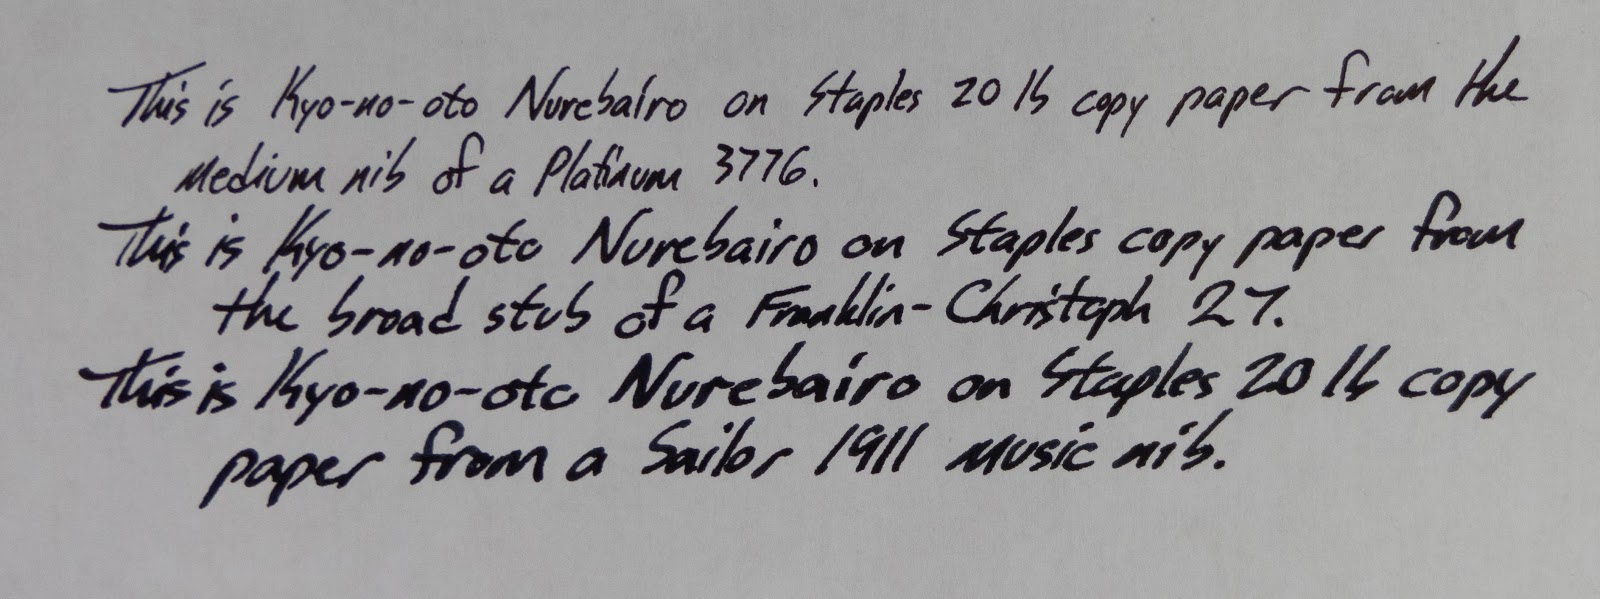 This is Kyo-no-oto Nurebairo on Staples 20 lb copy paper from the
medium nib of a Platinum 3776.
This is Kyo-no-oto Nurebairo on Staples copy paper from
the broad stub of a Franklin-Christoph 27.
This is Kyo-no-oto Nurebairo on Staples 20 lb copy
paper from a Sailor 1911 music nib.